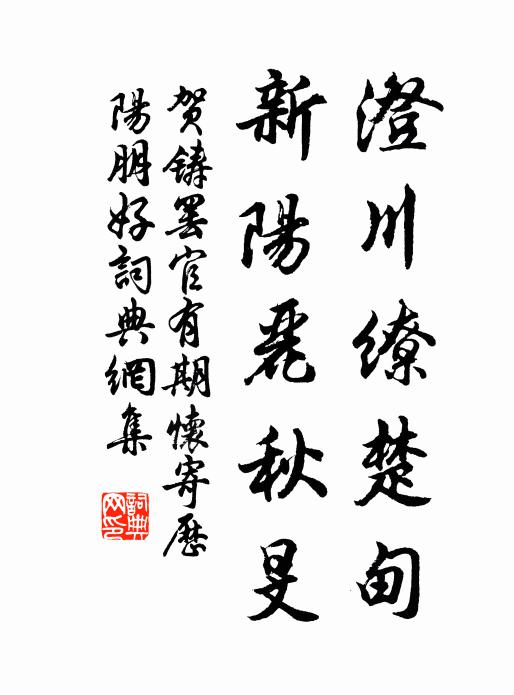 澄川繚楚甸
新陽麗秋旻
賀鑄罷官有期懷寄歷
陽朋好詞典網集
詞典網印